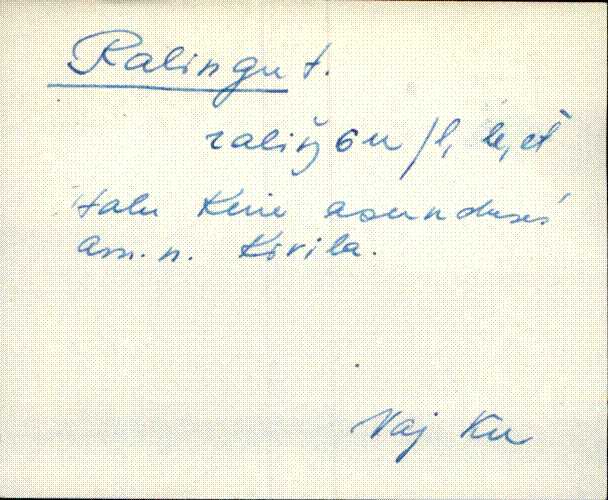 Ralingu t.
raliŋGu /l, le, et
talu Keie asunduses
am. n. Kõrila.
Vaj Ku